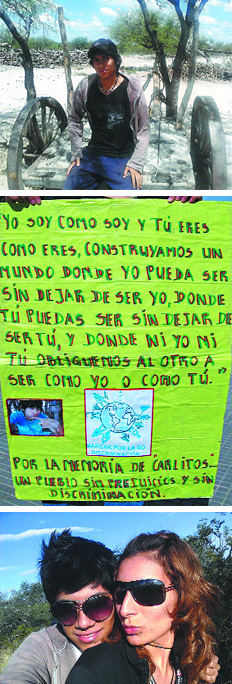 "YO SOY COMO SOY Y TÚ ERES
COMO ERES, CONSTRUYAMOS UN
MUNDO DONDE YO PUEDA SER
SIN DEJAR DE SER YO, DONDE
TÚ PUEDAS SER SIN DEJAR DE
SER TÚ, Y DONDE NI YO NI
TÚ OBLIGUEMOS AL OTRO A
SER COMO YO O COMO TÚ."
MARCHA POR LA NO
DISCRIMINACIÓN
POR LA MEMORIA DE "CARLITOS"...
UN PUEBLO SIN PREJUICIOS Y SIN
DISCRIMINACIÓN.